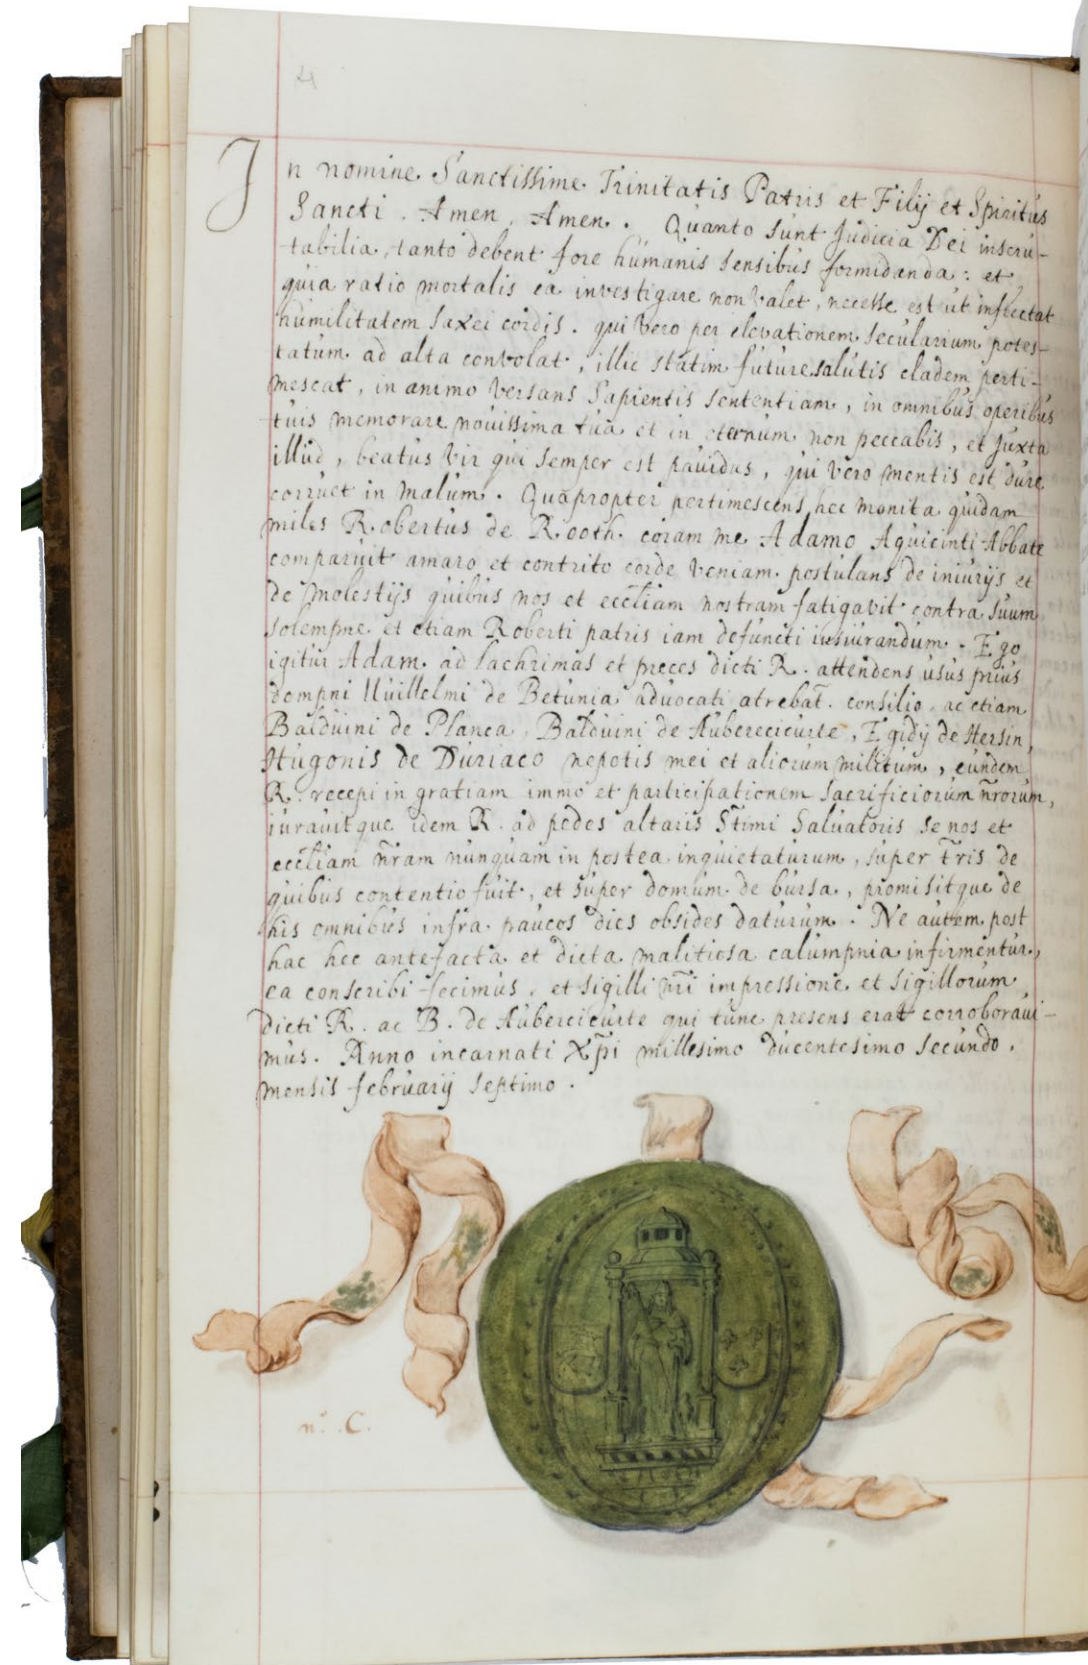 4
In nomine Sanctissime Trinitatis Patris et Filij et Spiritus
Sancti. Amen, Amen. Quanto sunt Judicia Dei inscru-
tabilia, tanto debent fore humanis sensibus formidanda: et
quia ratio mortalis ea investigare non valet, necesse est ut inflectat
humilitatem saxei cordis. qui vero per elevationem secularium potes-
tatum ad alta convolat, illic statim future salutis cladem perti-
mescat, in animo versans Sapientis sententiam, in omnibus operibus
tuis memorare novissima tua et in eternum non peccabis, et juxta
illud, beatus vir qui semper est pavidus, qui vero mentis est dure
corruet in malum. Quapropter pertimescens hec monita quidam
miles Robertus de Rooth coram me Adamo Aquicinti Abbate
comparuit amaro et contrito corde veniam postulans de iniurijs et
de molestijs quibus nos et eccl̄iam nostram fatigavit contra suum
solempne et etiam Roberti patris iam defuncti iusiurandum. Ego
igitur Adam ad lachrimas et preces dicti R. attendens usus prius
dompni Uuillelmi de Betunia advocati atrebat̄. consilio, ac etiam
Balduini de Planca, Balduini de Aubercicurte, Egidij de Hersin,
Hugonis de Duriaco nepotis mei et aliorum militum, eundem
R. recepi in gratiam immo et participationem sacrificiorum nr̄orum,
iuravitque idem R. ad pedes altaris St̄imi Salvatoris se nos et
eccl̄iam nr̄am nunquam in postea inquietaturum, super tr̄is de
quibus contentio fuit, et super domum de bursa, promisitque de
his omnibus infra paucos dies obsides daturum. Ne autem post
hac hec antefacta et dicta malitiosa calumpnia infirmentur,
ea conscribi fecimus, et sigilli nr̄i impressione et sigillorum
dicti R. ac B. de Aubercicurte qui tunc presens erat corroboravi-
mus. Anno incarnati Xp̄i millesimo ducentesimo secundo,
mensis februarij septimo.
n.° C.